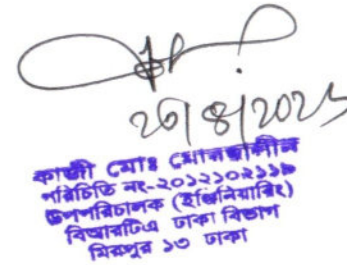 ২৬/৪/2025
কাজী মোঃ মোরছালীন
পরিচিতি নং-২০১২১০২১১৮
উপপরিচালক (ইঞ্জিনিয়ারিং)
বিআরটিএ ঢাকা বিভাগ
মিরপুর ১৩ ঢাকা